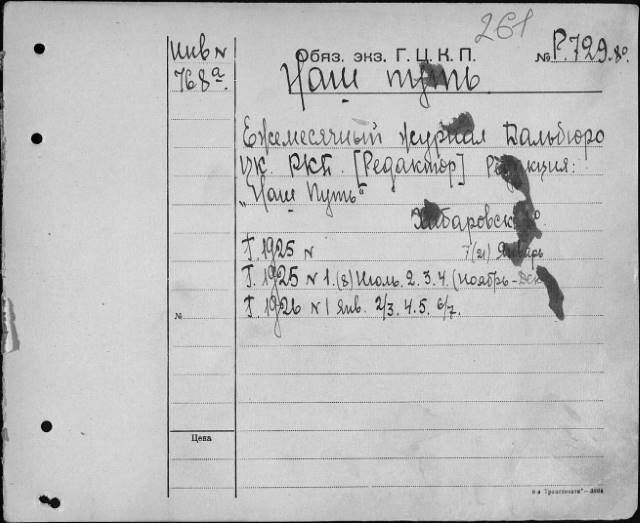 261
инв N
768а.
Обяз. экз. Г. Ц. К. П.
№ Р.729.8°
Наш путь
Ежемесячный журнал Дальбюро
ЦК. РКП. [Редактор] Редакция:
„Наш Путь"
Хабаровск
Г. 1925 N Январь
Г. 1925 N 1.(8) Июль. 2. 3. 4. (Ноябрь-Дек
Г. 1926 N 1 Янв. 2/3. 4. 5. 6/7.
№
Цена